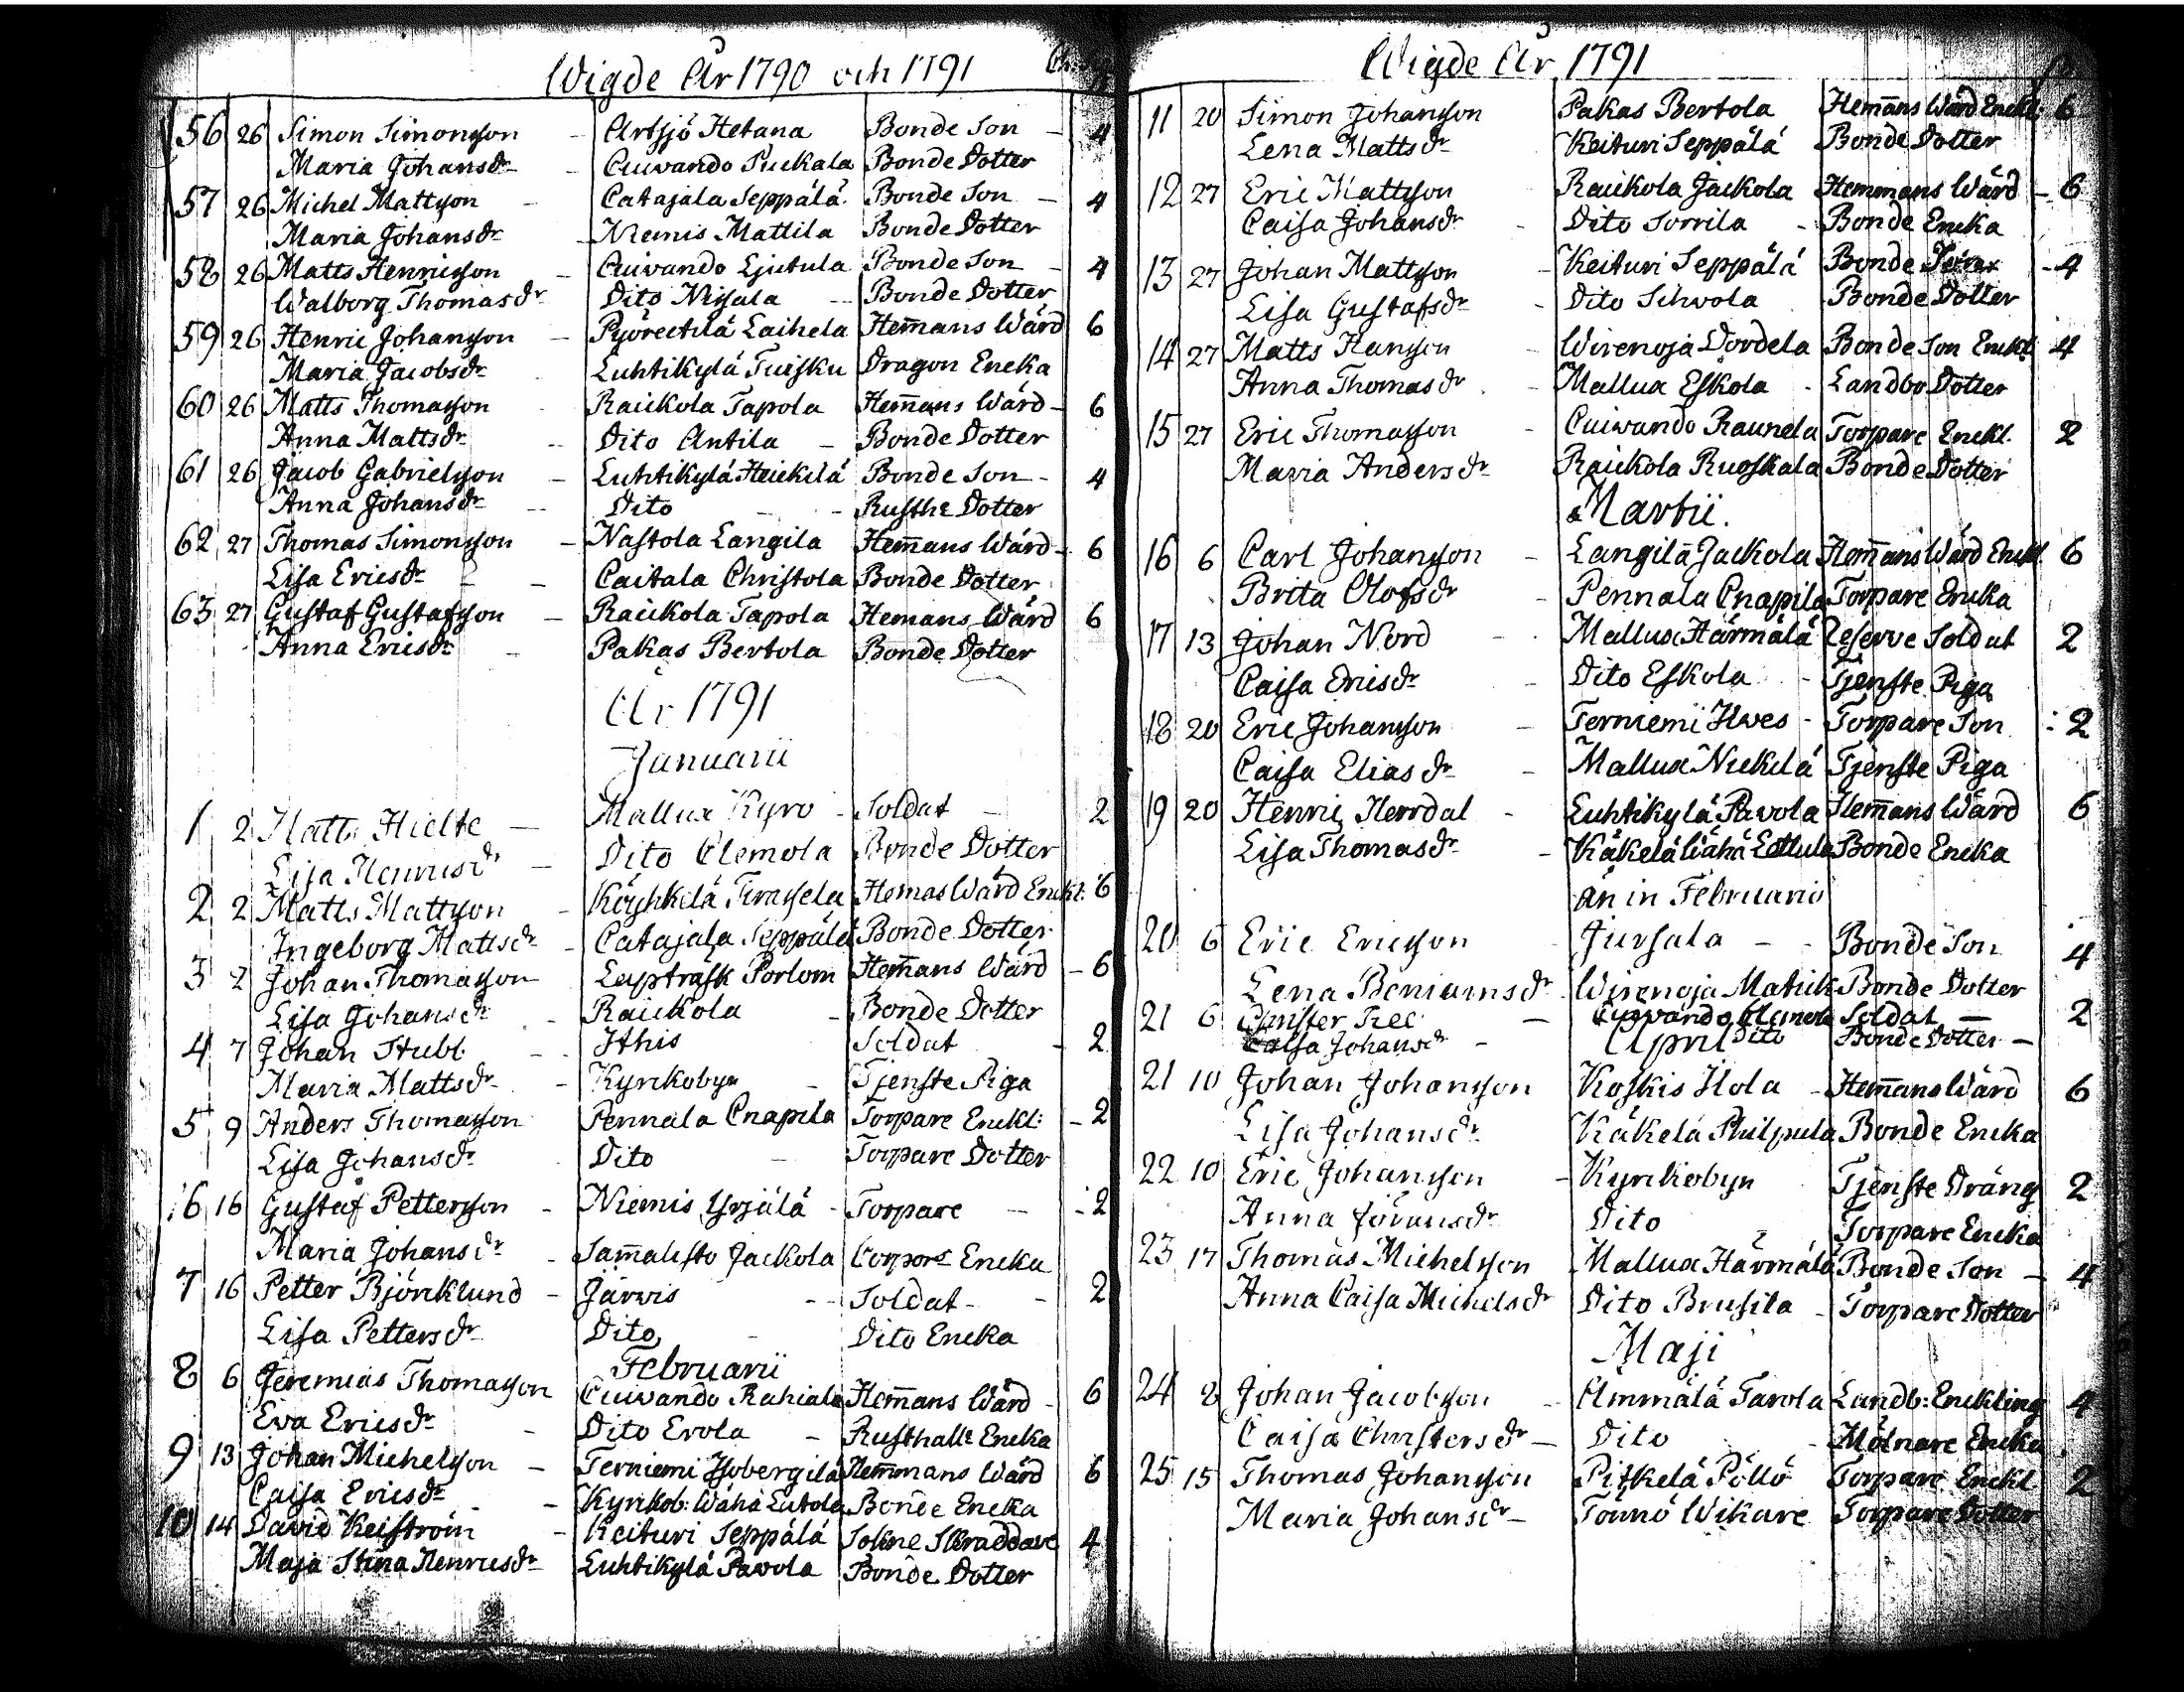 Wigde År 1790 och 1791
56 26 Simon Simonsson - Artsjö Hetana Bonde Son - 4
Maria Johansdr - Cuivando Puckala Bonde Dotter
57 26 Michel Mattsson - Catajala Seppälä Bonde Son - 4
Maria Johansdr - Niemis Mattila Bonde Dotter
58 26 Matts Henricsson - Cuivando Ljutula Bonde Son - 4
Walborg Thomasdr Dito Nisala - Bonde Dotter
59 26 Henric Johansson - Pyörectilä Laihela Hem̄ans Wärd 6
Maria Jacobsdr Luhtikylä Tuisku Dragon Encka
60 26 Matts Thomasson Raickola Tapola Hem̄ans Wärd - 6
Anna Mattsdr - Dito Antila - Bonde Dotter
61 26 Jacob Gabrielsson - Luhtikylä Heickilä Bonde Son - 4
Anna Johansdr - Dito - - Rusth: Dotter
62 27 Thomas Simonsson - Nastola Langila Hem̄ans Wärd - 6
Lisa Ericsdr - - Caitala Christola Bonde Dotter
63 27 Gustaf Gustafsson - Raickola Tapola Hemans Wärd 6
Anna Ericsdr - Pakas Bertola Bonde Dotter
År 1791
Januarii
1 2 Matts Hielte - Mallux Kyro - Soldat - 2
Lisa Henricsdr - Dito Clemola Bonde Dotter
2 2 Matts Mattsson - Köyhkilä Hemas Wärd Enckl: 6
Ingeborg Mattsdr - Catajala Seppälä Bonde Dotter
3 2 Johan Thomasson Laptrask Porlom Hem̄ans Wärd - 6
Lisa Johansdr - Raickola - Bonde Dotter
4 7 Johan Stubb - Ithis Soldat - 2
Maria Mattsdr - Kyrckobyn - Tjenste Piga
5 9 Anders Thomasson Pennala Cnapila Torpare Enckl: - 2
Lisa Johansdr Dito - Torpare Dotter
6 16 Gustaf Pettersson - Niemis Yrjälä - Torpare - 2
Maria Johansdr - Sam̄alisto Jackola Corporls Encka
7 16 Petter Björcklund - Järwis - - Soldat - - 2
Lisa Pettersdr Dito - Dito Encka
Februarii
8 6 Jeremias Thomasson Cuivando Rahiala Hem̄ans Wärd - 6
Eva Ericsdr - Dito Erola - Rusthalls Encka
9 13 Johan Michelsson - Terniemi Isobergilä Hem̄mans Wärd 6
Caisa Ericsdr - - Kyrckob: Wähä Eutola Bonde Encka
10 14 David Keiström - Keituri Seppälä Sokne Skraddare 4
Maja Stina Henricsdr Luhtikylä Pavola Bonde Dotter
Wigde År 1791
11 20 Simon Johansson Pakas Bertola Hem̄ans Wärd Enckl: 6
Lena Mattsdr Keituri Seppälä Bonde Dotter
12 27 Eric Mattsson Raickola Jackola Hemmans Wärd - 6
Caisa Johansdr - Dito Sorrila - Bonde Encka
13 27 Johan Mattsson - Keituri Seppälä Bonde - 4
Lisa Gustafsdr - Dito Schvola Bonde Dotter
14 27 Matts Hansson - Wirenoja Dordela Bonde Son Enckl 4
Anna Thomasdr - Mallux Eskola - Landbo Dotter
15 27 Eric Thomasson - Cuivando Raunela Torpare Enckl. 2
Maria Andersdr Raickola Ruoskala Bonde Dotter
Martii.
16 6 Carl Johansson - Langilä Jackola Hem̄ans Wärd Enckl 6
Brita Olofsdr - Pennala Cnapila Torpare Encka
17 13 Johan Nord - Mallux Härmälä Reserve Soldat 2
Caisa Ericsdr - Dito Eskola - Tjenste Piga
18 20 Eric Johansson - Terniemi Ilves - Torpare Son - 2
Caisa Eliasdr - Mallux Nickilä Tjenste Piga
19 20 Henric Herrdal - Luhtikylä Pavola Hem̄ans Wärd 6
Lisa Thomasdr - Käkelä Wähä Eettula Bonde Encka
än in Februario
20 6 Eric Ericsson Jursala - - Bonde Son 4
Lena Beniamsdr Wirenoja Matick Bonde Dotter
21 6 Christer Tree - Cuivando Clemola Soldat - 2
Caisa Johansdr - Dito Bonde Dotter -
April
21 10 Johan Johansson Koskis Hola - Hem̄ans Wärd 6
Lisa Johansdr Käkelä Philpula Bonde Encka
22 10 Eric Johansson - Kyrckobyn Tjenste Dräng 2
Anna Göransdr Dito Torpare Encka
23 17 Thomas Michelsson Mallux Härmälä Bonde Son - 4
Anna Caisa Michelsdr Dito Brusila - Torpare Dotter
Maji
24 8 Johan Jacobsson - Ammälä Tavola Landb: Enckling 4
Caisa Christersdr - Dito - Mölnare Encka
25 15 Thomas Johansson Pitkelä Pöllö Torpare Enckl 2
Maria Johansdr - Tönnö Wikare Torpare Dotter